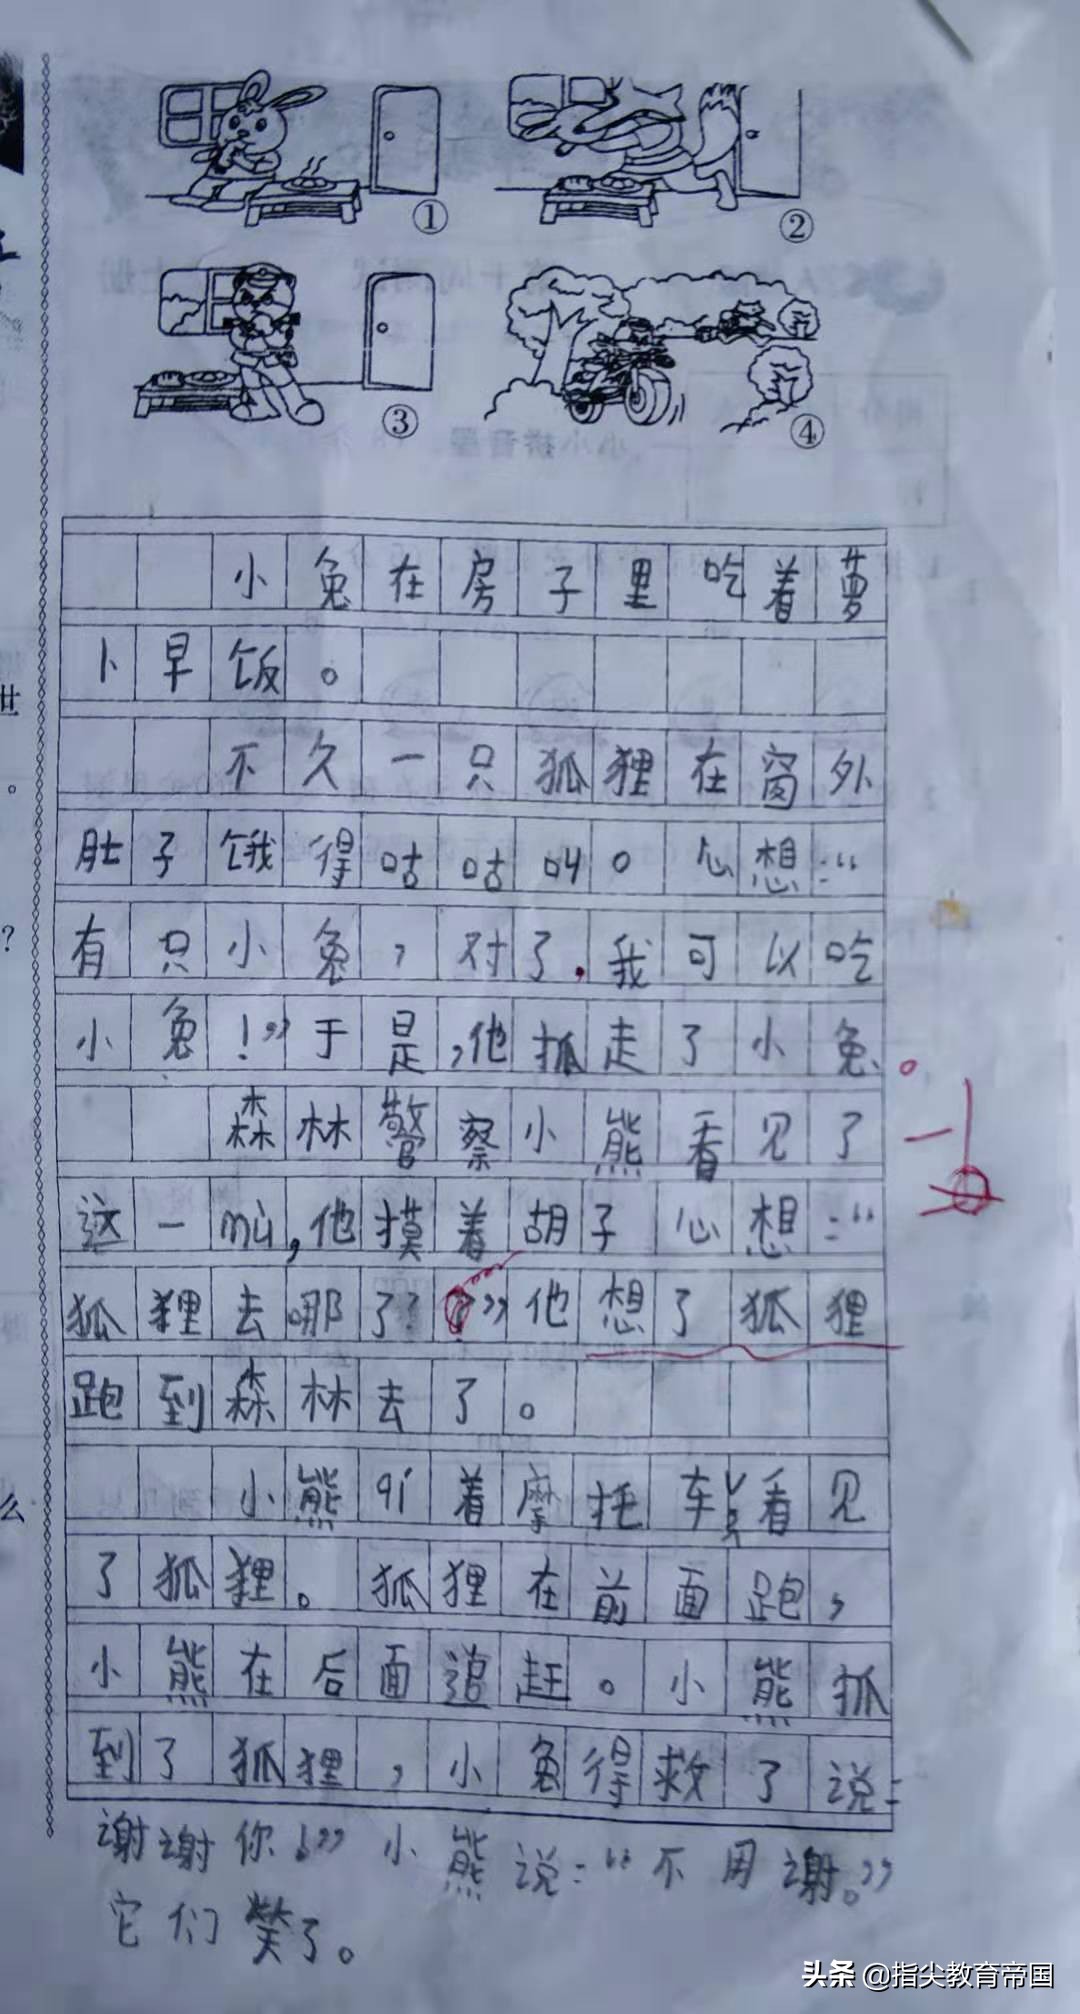 ①
②
③
④
小兔在房子里吃着萝
卜早饭。
不久一只狐狸在窗外
肚子饿得咕咕叫。心想:“
有只小兔,对了,我可以吃
小兔!”于是,他抓走了小兔。
森林警察小熊看见了
这一mù,他摸着胡子心想:“
狐狸去哪了?”他想了狐狸
跑到森林去了。
小熊qí着摩托车看见
了狐狸。狐狸在前面跑,
小熊在后面追赶。小熊抓
到了狐狸,小兔得救了说:
谢谢你!”小熊说:“不用谢。”
它们笑了。
世
。
?
么
头条 @指尖教育帝国